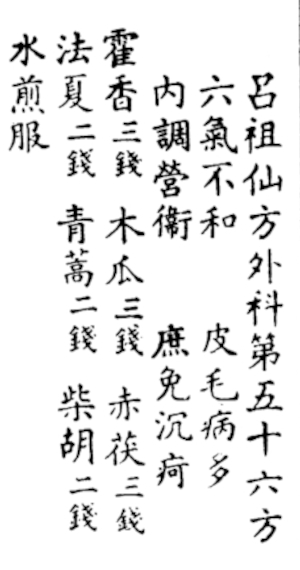 呂祖仙方外科第五十六方
六氣不和 皮毛病多
內調營衛 庶免沉疴
霍香三錢 木瓜三錢 赤茯三錢
法夏二錢 青蒿二錢 柴胡二錢
水煎服